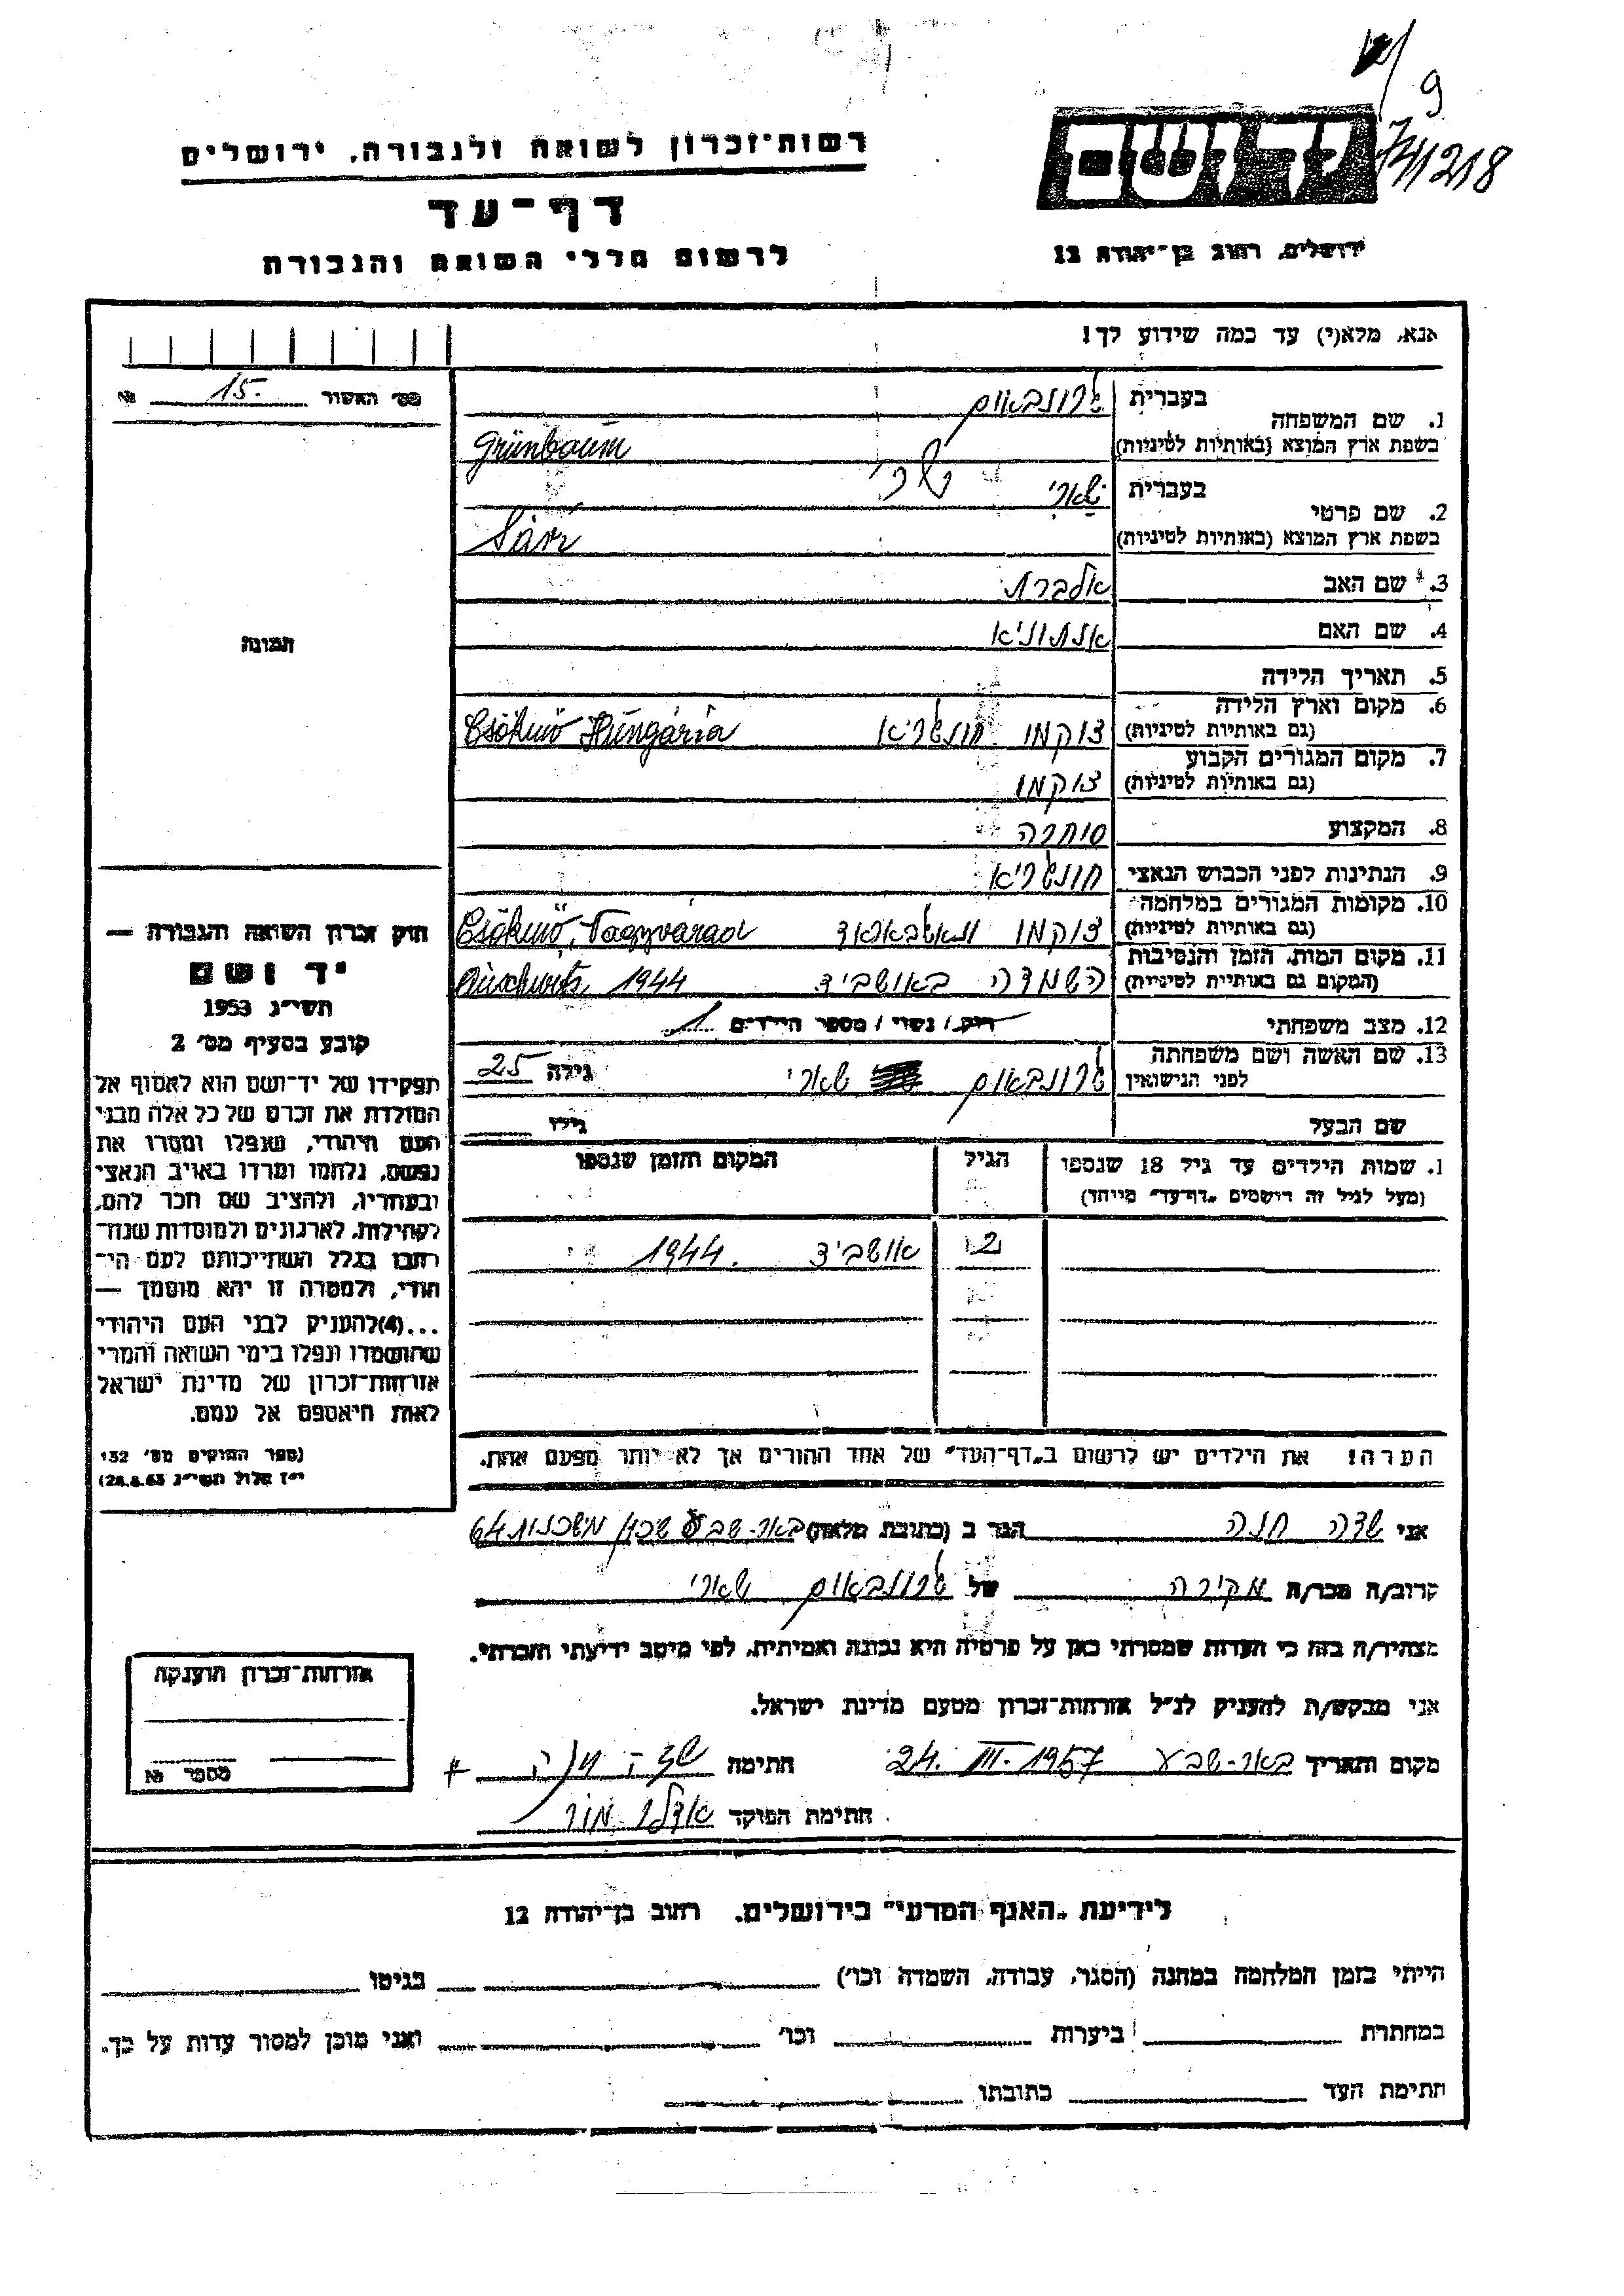 9
741218
יד ושם
רשות־זכרון לשואה ולגבורה, ירושלים
דף־עד
לרשום חללי השואה והגבורה
ירושלים, רחוב בן־יהודה 12
אנא, מלא(י) עד כמה שידוע לך!
מס׳ האשור 15. №
1. שם המשפחה
בעברית גרונבאום
בשפת ארץ המוצא (באותיות לטיניות) Grünbaum
2. שם פרטי
בעברית שארי שרי
בשפת ארץ המוצא (באותיות לטיניות) Sári
3. שם האב אלברט
4. שם האם אנטוניא
תמונה
5. תאריך הלידה
6. מקום וארץ הלידה
(גם באותיות לטיניות) צוקמו הונגריא Csökmő Hungária
7. מקום המגורים הקבוע
(גם באותיות לטיניות) צוקמו
8. המקצוע סוחרה
9. הנתינות לפני הכבוש הנאצי הונגריא
10. מקומות המגורים במלחמה
(גם באותיות לטיניות) צוקמו ונאגבאראד Csökmő, Nagyvárad
11. מקום המות, הזמן והנסיבות
(המקום גם באותיות לטיניות) השמדה באושביץ Auschwitz 1944
12. מצב משפחתי רוק / נשוי / מספר הילדים 1
13. שם האשה ושם משפחתה
לפני הנישואין גרונבאום שארי גילה 25
שם הבעל גילו
1. שמות הילדים עד גיל 18 שנספו
(מעל לגיל זה רושמים „דף־עד״ מיוחד)
הגיל
המקום והזמן שנספו
2 אושביץ 1944.
הערה! את הילדים יש לרשום ב„דף־העד״ של אחד ההורים אך לא יותר מפעם אחת.
חוק זכרון השואה והגבורה —
יד ושם
תשי״ג 1953
קובע בסעיף מס׳ 2
תפקידו של יד־ושם הוא לאסוף אל
המולדת את זכרם של כל אלה מבני
העם היהודי, שנפלו ומסרו את
נפשם, נלחמו ומרדו באויב הנאצי
ובעוזריו, ולהציב שם וזכר להם,
לקהילות, לארגונים ולמוסדות שנח־
רבו בגלל השתייכותם לעם הי־
הודי, ולמטרה זו יהא מוסמך —
...(4)להעניק לבני העם היהודי
שהושמדו ונפלו בימי השואה והמרי
אזרחות־זכרון של מדינת ישראל
לאות היאספם אל עמם.
(ספר החוקים מס׳ 132
י״ז אלול תשי״ג 28.8.53)
אני שדה חנה הגר ב (כתובת מלאה) באר-שבע שכון משכנות 64
קרוב/ה מכר/ה מקירה של גרונבאום שארי
מצהיר/ה בזה כי העדות שמסרתי כאן על פרטיה היא נכונה ואמיתית, לפי מיטב ידיעתי והכרתי.
אני מבקש/ת להעניק לנ״ל אזרחות־זכרון מטעם מדינת ישראל.
מקום ותאריך באר-שבע 24. III. 1957 חתימה שדה חנה +
חתימת הפוקד אדלר מור
אזרחות־זכרון הוענקה
מספר №
לידיעת „האגף המדעי״ בירושלים. רחוב בן־יהודה 12
הייתי בזמן המלחמה במחנה (הסגר, עבודה, השמדה וכו׳) בגיטו
במחתרת ביערות וכו׳ ואני מוכן למסור עדות על כך.
חתימת העד כתובתו